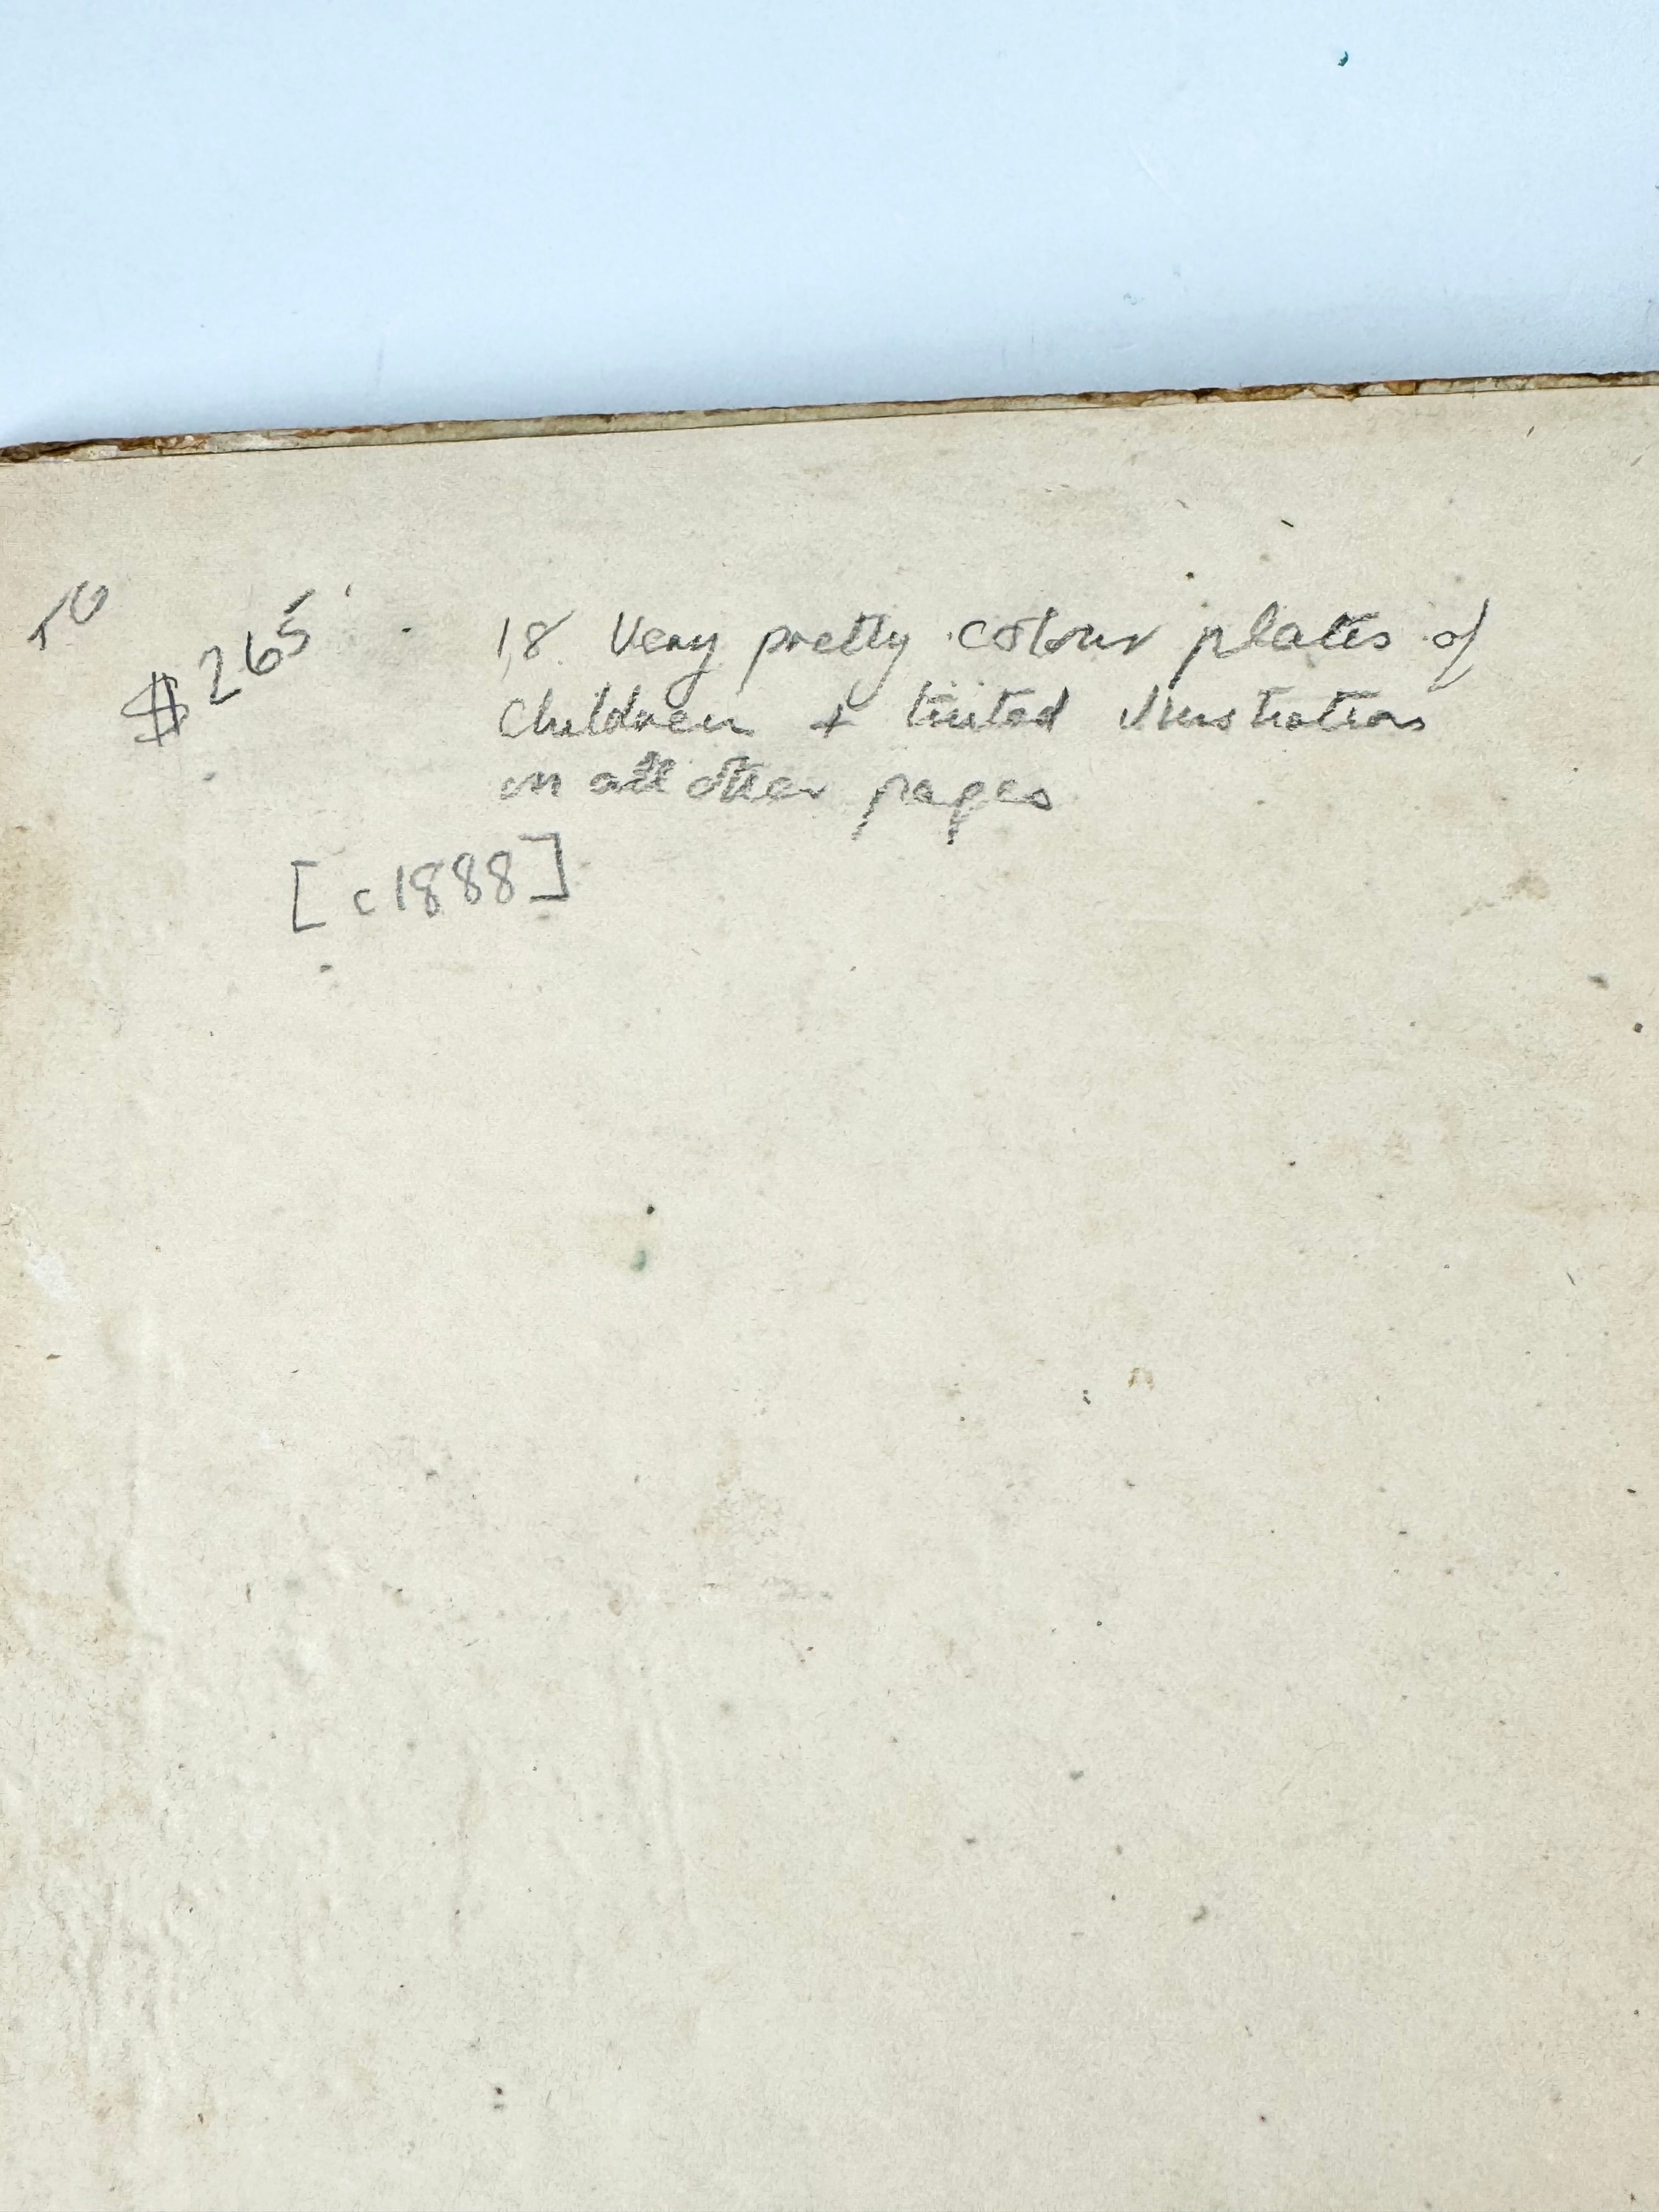 $265
18 Very pretty colour plates of
Children + tinted illustrations
on all other pages
[c1888]